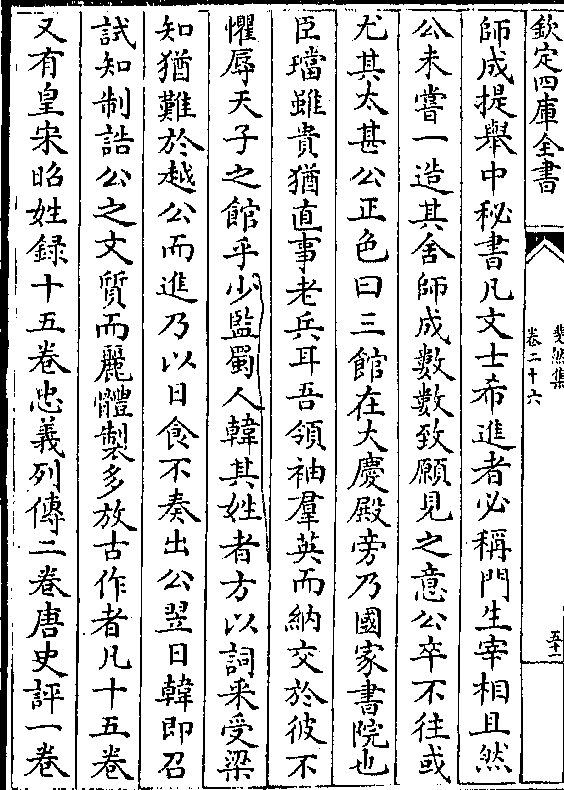 欽定四庫全書
斐然集
卷二十六
五十二
師成提舉中秘書凡文士希進者必稱門生宰相且然
公未嘗一造其舍師成數數致願見之意公卒不往或
尤其太甚公正色曰三館在大慶殿旁乃國家書院也
臣璫雖貴猶直事老兵耳吾領袖羣英而納交於彼不
懼辱天子之館乎少監蜀人韓其姓者方以詞采受梁
知猶難於越公而進乃以日食不奏出公翌日韓即召
試知制誥公之文質而麗體製多放古作者凡十五卷
又有皇宋昭姓録十五卷忠義列傳二卷唐史評一卷